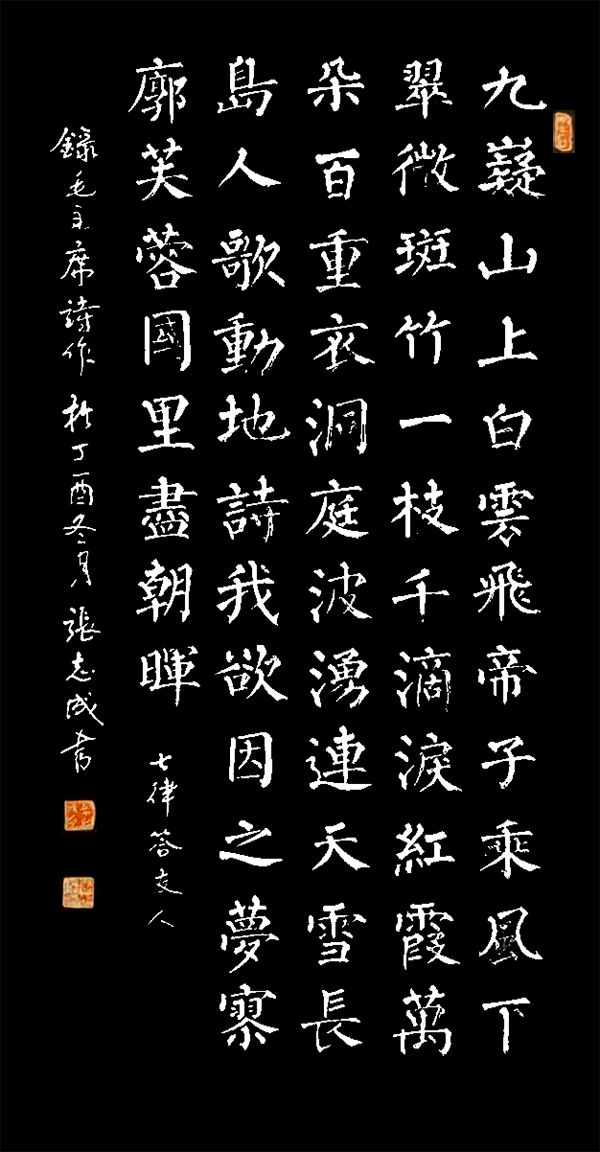 九嶷山上白雲飛帝子乘風下
翠微斑竹一枝千滴淚紅霞萬
朵百重衣洞庭波湧連天雪長
島人歌動地詩我欲因之夢寥
廓芙蓉國里盡朝暉 七律答友人
錄毛主席詩作 於丁酉冬月 張志成書